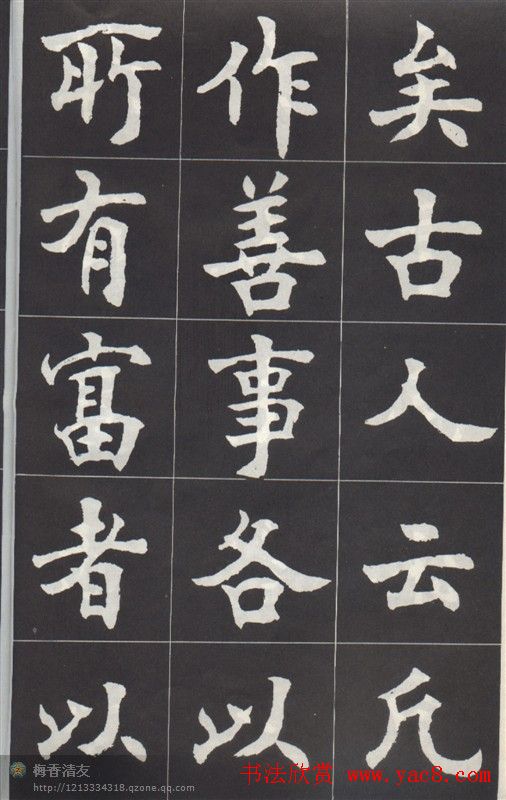 矣古人云凡
作善事各以
所有富者以
梅香清友
http://1213334318.qzone.qq.com
书法欣赏 www.yac8.com